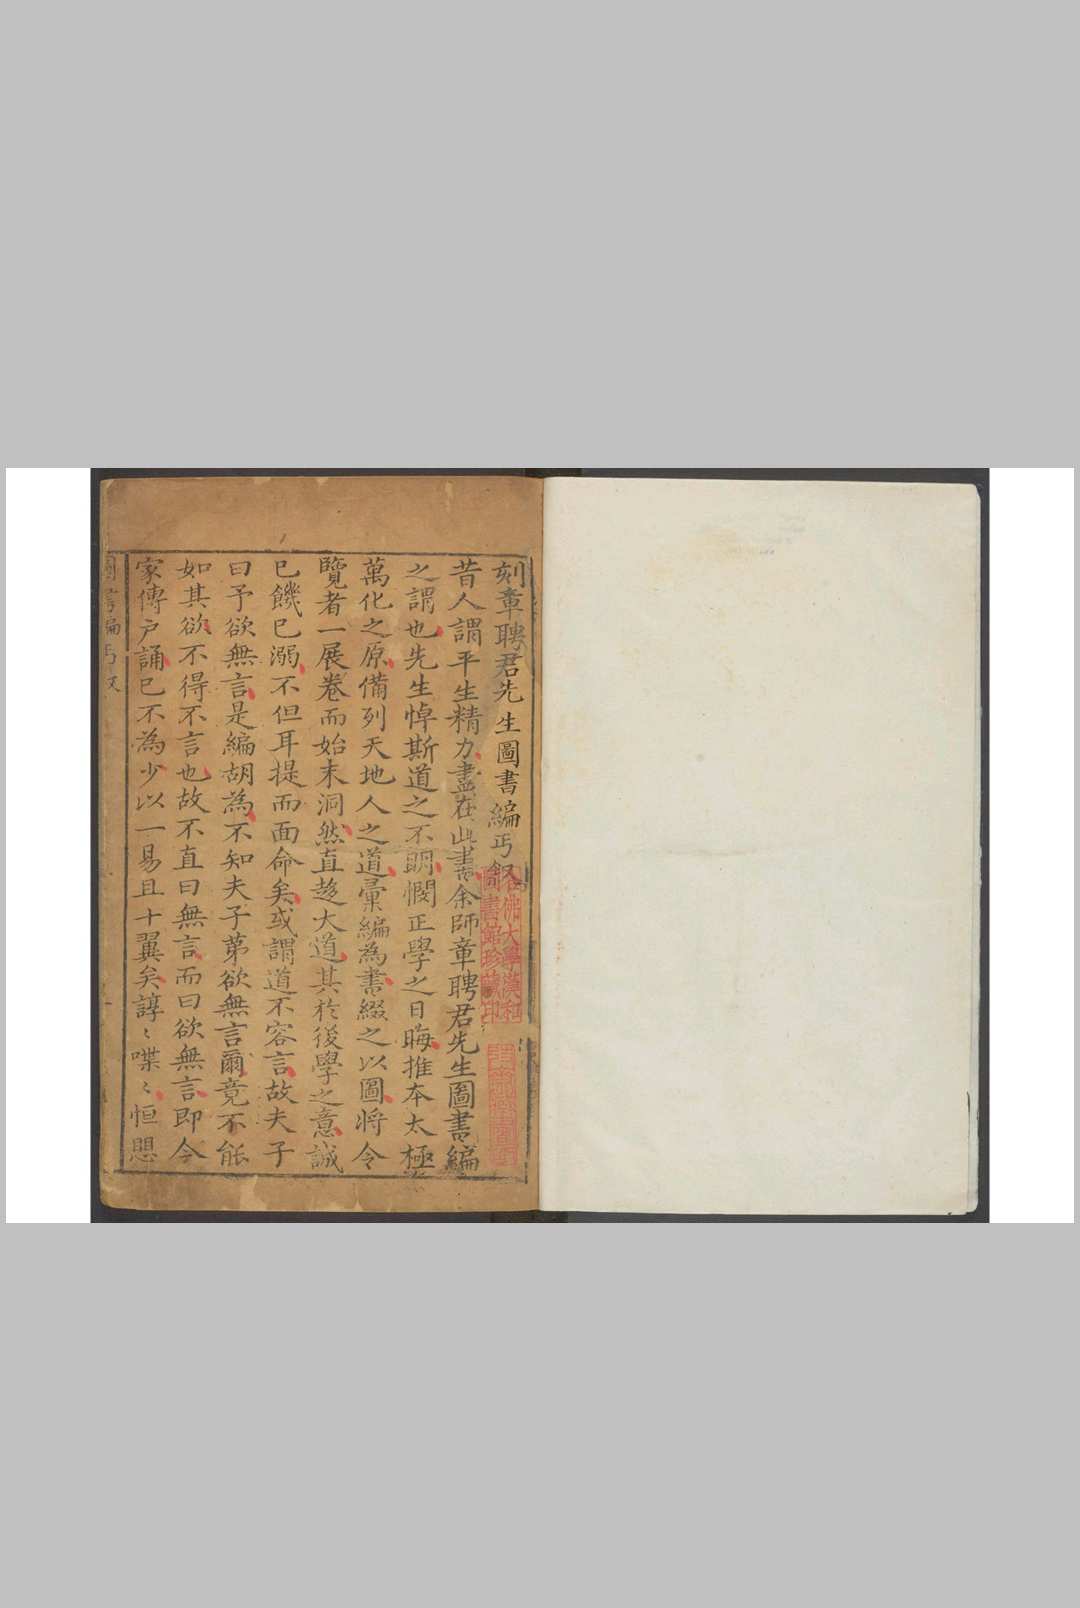 刻章聘君先生圖書編丐叙
昔人謂平生精力盡在此書余師章聘君先生圖書編
之謂也先生悼斯道之不明憫正學之日晦推本太極
萬化之原備列天地人之道彙編為書綴之以圖將令
覽者一展卷而始末洞然直趍大道其於後學之意誠
已饑已溺不但耳提而面命矣或謂道不容言故夫子
曰予欲無言是編胡為不知夫子苐欲無言爾竟不能
如其欲不得不言也故不直曰無言而曰欲無言即今
家傳户誦已不為少以一易且十翼矣諄〻喋〻恒思
圖書編丐叙
哈佛大學漢和
圖書館珍藏印